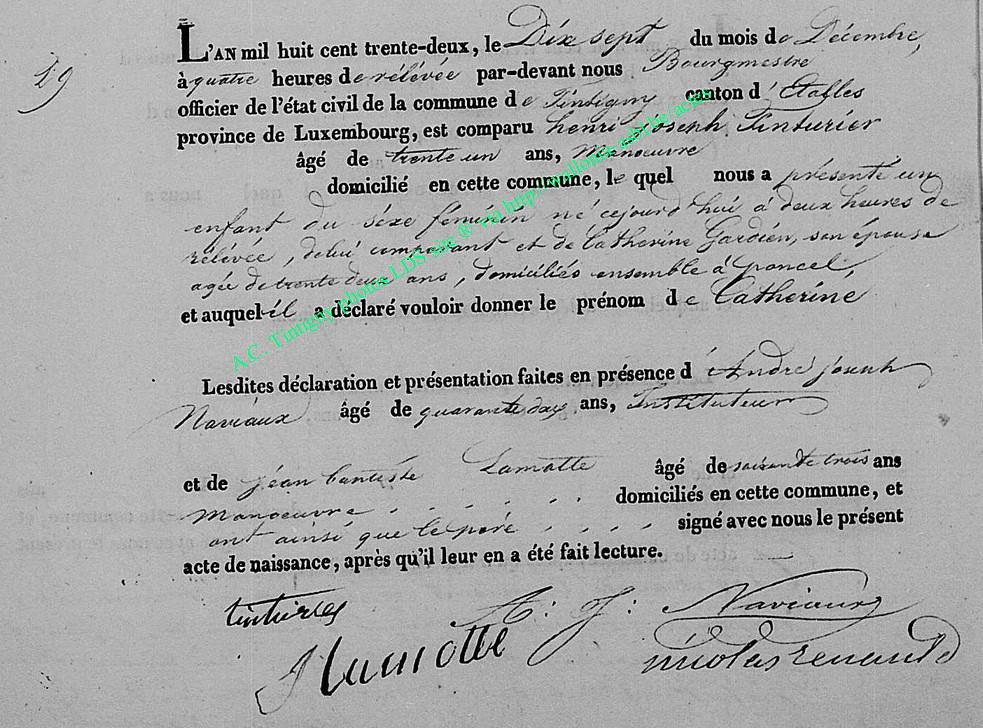 29
L'AN mil huit cent trente-deux, le Dix sept du mois de Décembre,
à quatre heures de rélévée par-devant nous Bourgmestre
officier de l'état civil de la commune de Tintigny canton d'Etalles
province de Luxembourg, est comparu henri Joseph Tinturier
âgé de trente un ans, Manoeuvre
domicilié en cette commune, le quel nous a présenté un
enfant du séxe féminin né cejourd'hui à deux heures de
rélévée, de lui comparant et de Catherine Gardien, son épouse
agée de trente deux ans, domiciliés ensemble à poncel,
et auquel il a déclaré vouloir donner le prénom de Catherine
A.C. Tintigny photos LDS site ® via http
Lesdites déclaration et présentation faites en présence d'André joseph
Naviaux âgé de quarante deux ans, Instituteur
et de jéan baptiste Lamotte âgé de soixante trois ans
Manoeuvre . . . . . domiciliés en cette commune, et
ont ainsi que le pére . . . . signé avec nous le présent
acte de naissance, après qu'il leur en a été fait lecture.
A: J: Naviaux
Lamotte
nicolas renauld